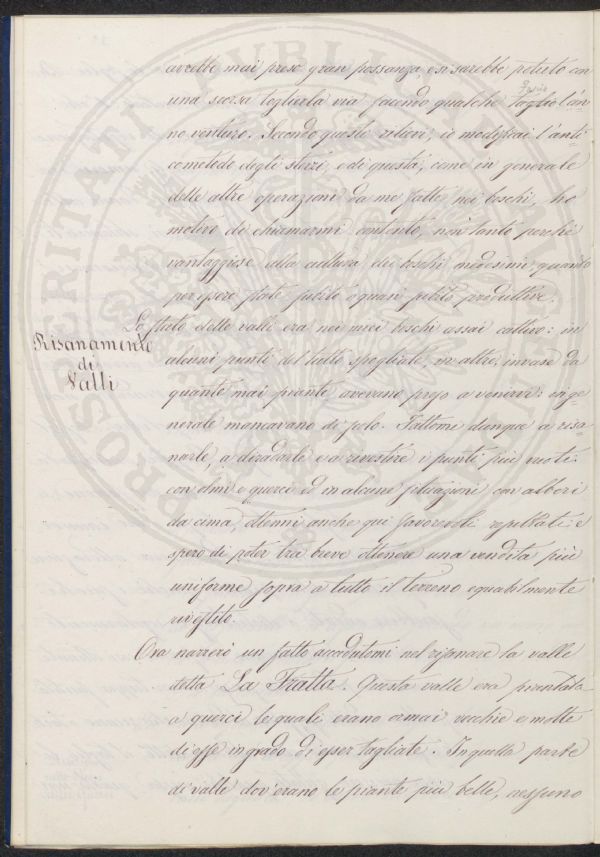 avrebbe mai preso gran possanza, e si sarebbe potuto con
una scorsa toglierla via facendo qualche Taglio l'an-
no venturo. Secondo questi rilievi, io modificai l'anti-
co metodo degli sterzi, e di questa, come in generale
delle altre operazioni da me fatte nei boschi, ho
motivo di chiamarmi contento, non tanto perché
vantaggiose alla cultura dei boschi medesimi, quanto
per essere state subito o quasi subito produttive.
Risanamento
di
Valli
Lo stato delle valli era nei miei boschi assai cattivo: in
alcuni punti del tutto spogliate, in altre, invase da
quante mai piante avevano preso a venirvi: in ge-
nerale mancavano di palo. Fattomi dunque a risa-
narle, a diradarle e a rivestire i punti più vuoti
con olmi e querci ed in alcune situazioni con alberi
da cima, ottenni anche qui favorevoli resultati: e
spero di poter tra breve ottenere una vendita più
uniforme sopra a tutto il terreno equabilmente
rivestito.
Ora narrerò un fatto accadutomi nel risanare la valle
detta La Fratta. Questa valle era piantata
a querci le quali erano ormai vecchie e molte
di esse in grado di esser tagliate. In quella parte
di valle dov'erano le piante più belle, nessuno